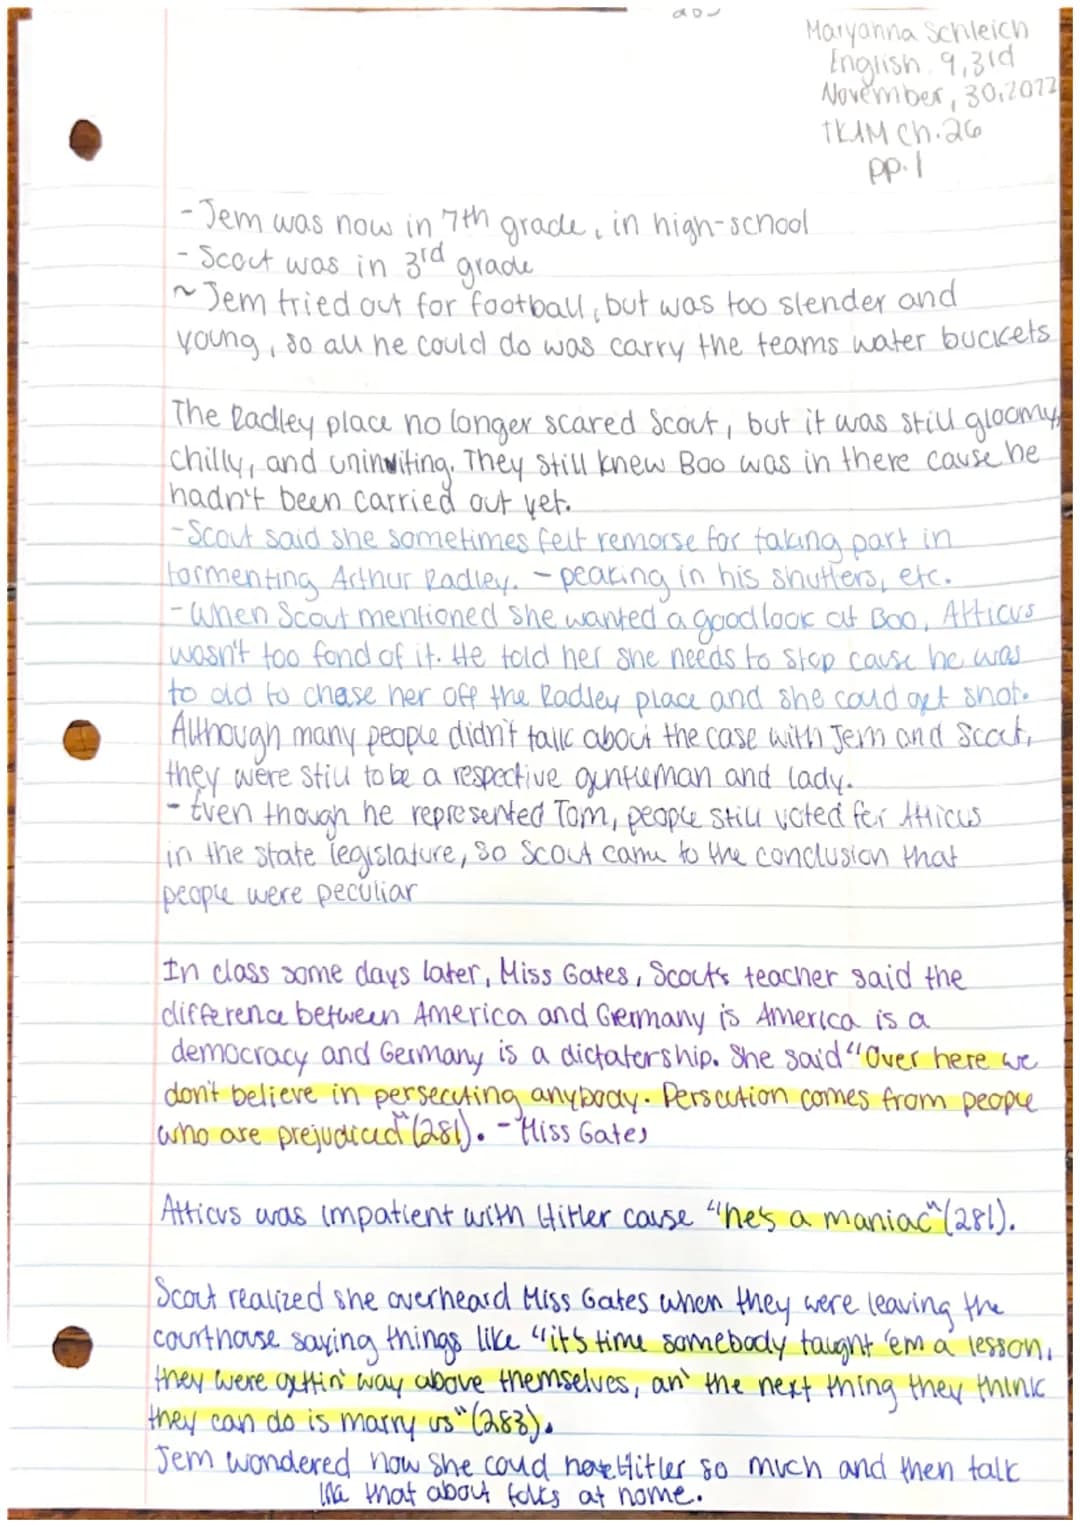 Maryanna Schleich
English 9, 3rd
November, 30, 2022
TKAM Ch. 26
pp. 1
- Jem was now in 7th grade, in high-school
- Scout was in 3rd grade
~ Jem tried out for football, but was too slender and
young, so all he could do was carry the teams water buckets
The Radley place no longer scared Scout, but it was still gloomy,
chilly, and uninviting. They still knew Boo was in there cause he
hadn't been carried out yet.
- Scout said she sometimes felt remorse for taking part in
tormenting Arthur Radley. - peaking in his shutters, etc.
- When Scout mentioned she wanted a good look at Boo, Atticus
wasn't too fond of it. He told her she needs to stop cause he was
to old to chase her off the Radley place and she could get shot.
Although many people didn't talk about the case with Jem and Scout,
they were still to be a respective gentleman and lady.
- Even though he represented Tom, people still voted for Atticus
in the state legislature, so Scout came to the conclusion that
people were peculiar
In class some days later, Miss Gates, Scout's teacher said the
difference between America and Germany is America is a
democracy and Germany is a dictatorship. She said "Over here we
don't believe in persecuting anybody. Perscution comes from people
who are prejudiced" (281). - Miss Gates
Atticus was impatient with Hitler cause "he's a maniac" (281).
Scout realized she overheard Miss Gates when they were leaving the
courthouse saying things like "it's time somebody taught 'em a lesson,
they were gettin' way above themselves, an' the next thing they think
they can do is marry us" (283).
Jem wondered how she could hate Hitler so much and then talk
like that about folks at home.